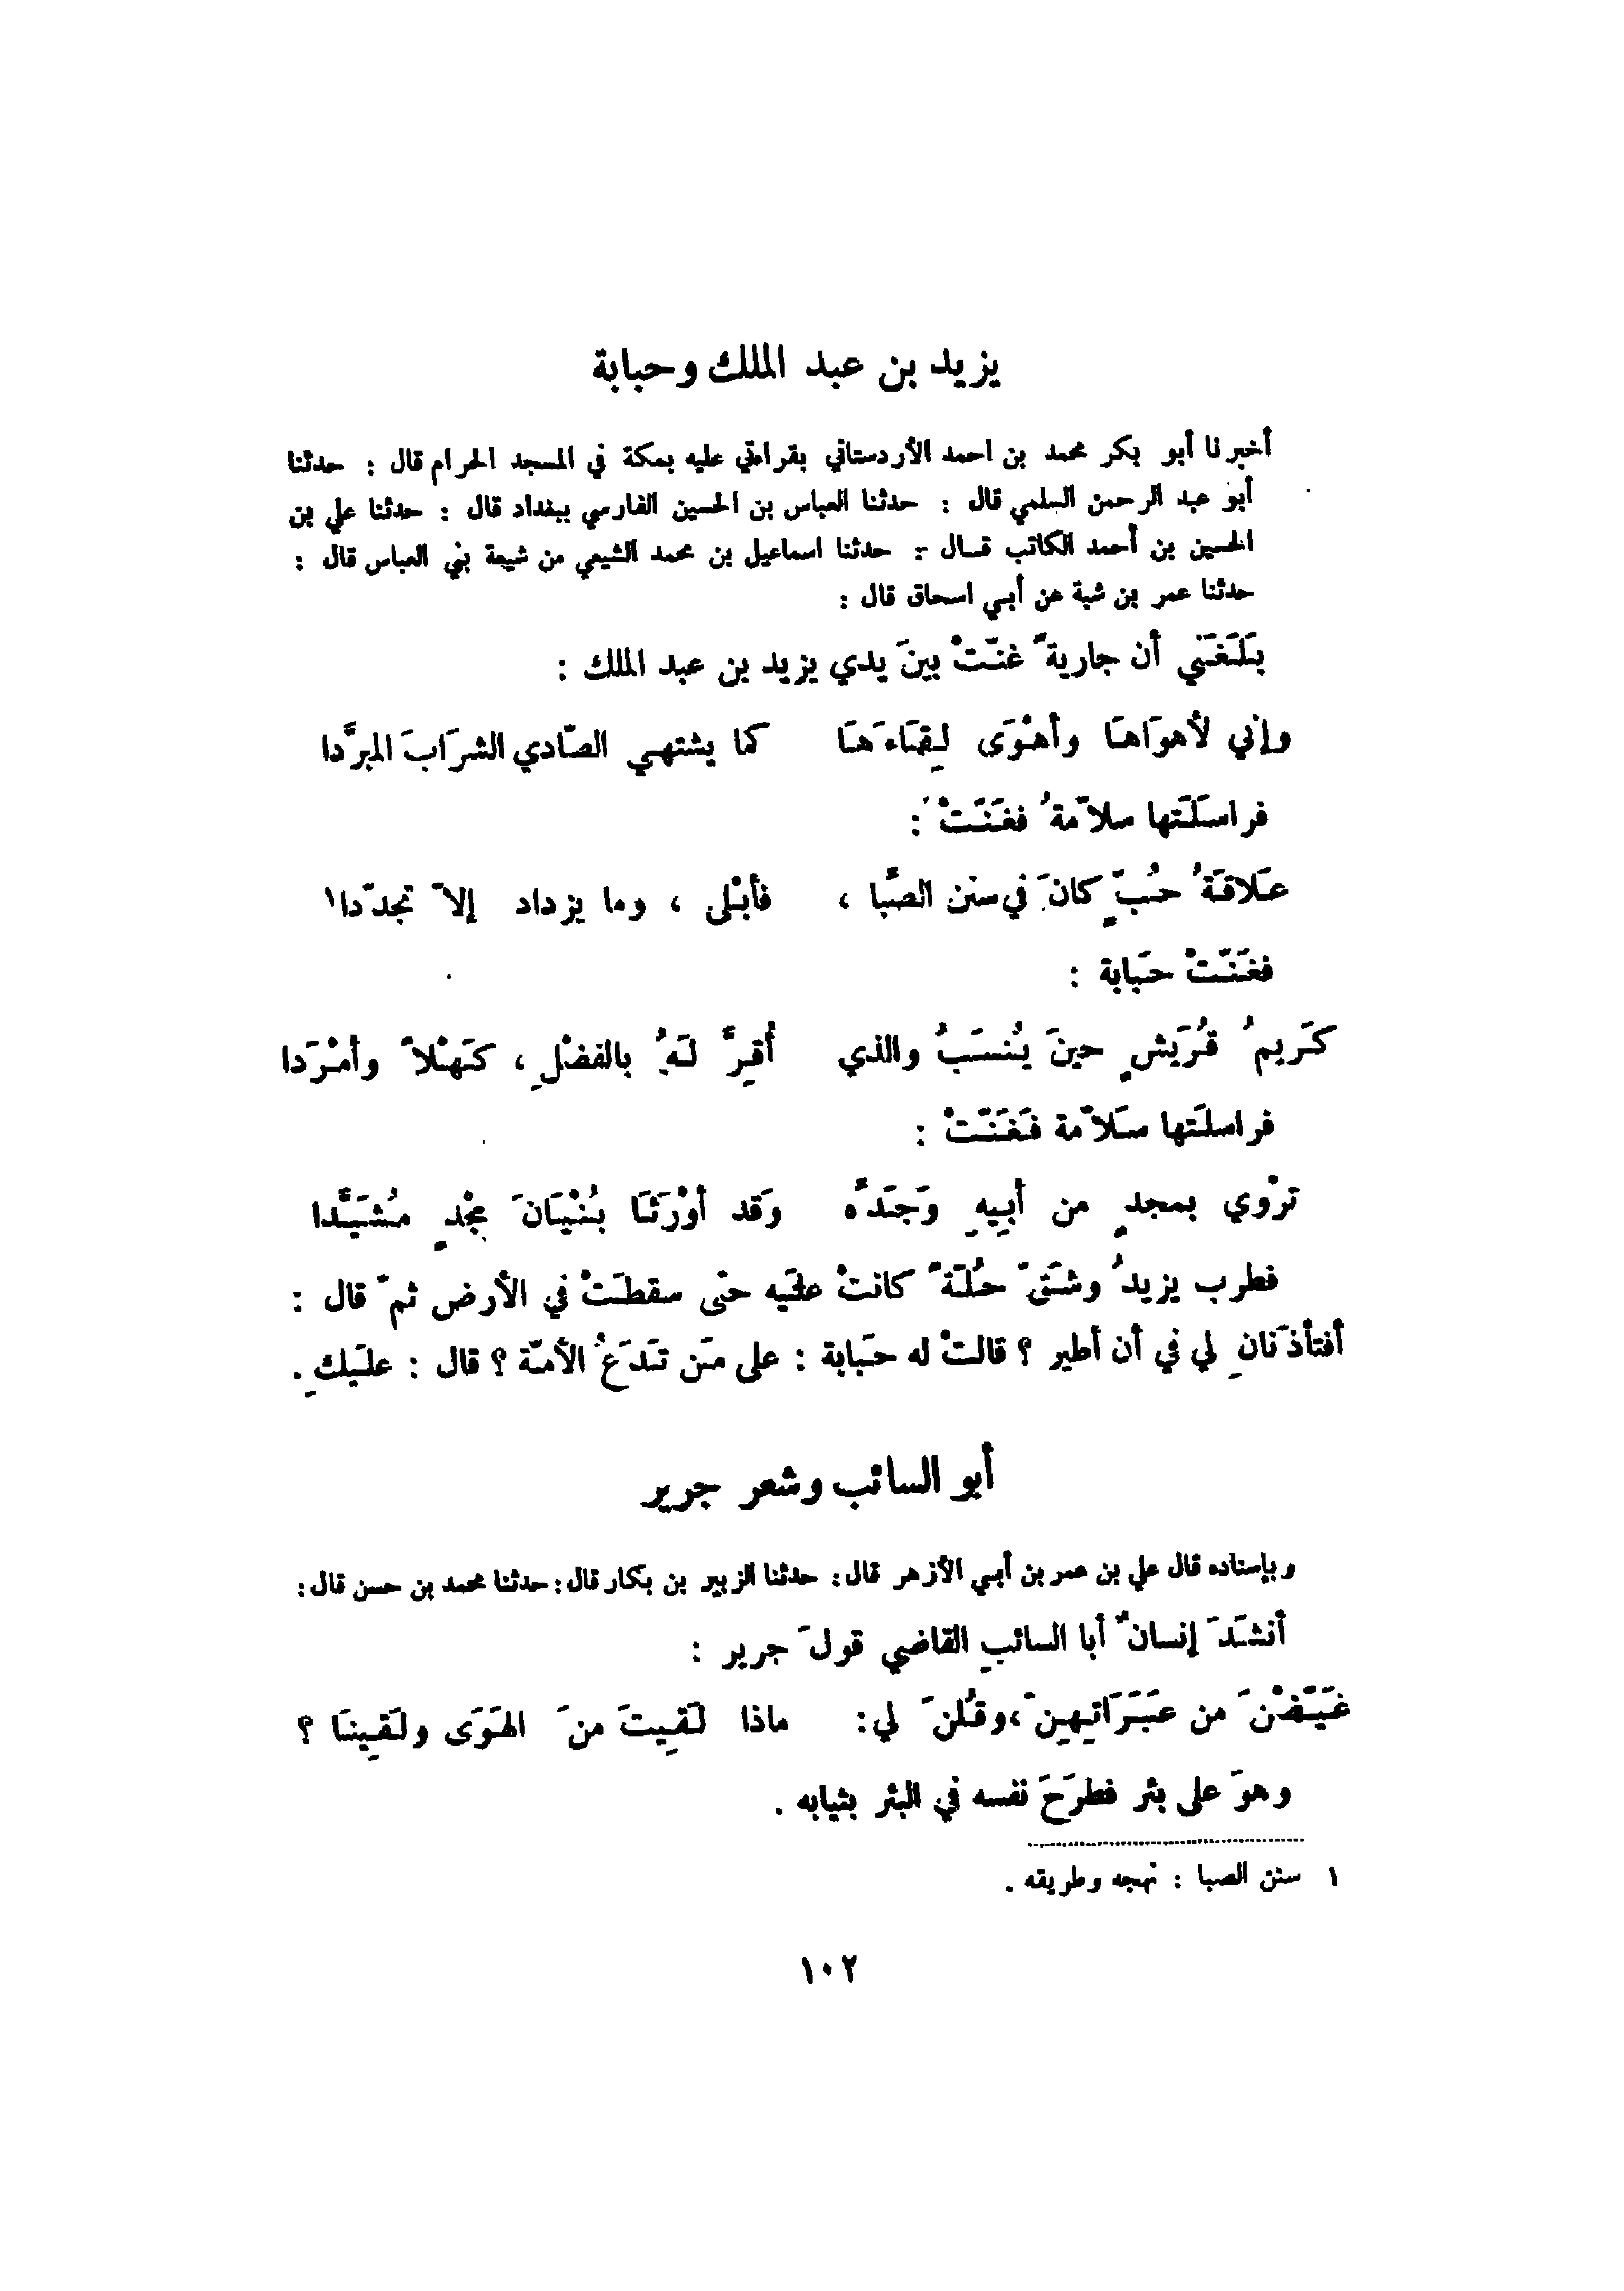 يزيد بن عبد الملك وحبابة
أخبرنا أبو بكر محمد بن احمد الأردستاني بقراءتي عليه بمكة في المسجد الحرام قال : حدثنا
أبو عبد الرحمن السلمي قال : حدثنا العباس بن الحسين الفارسي ببغداد قال : حدثنا علي بن
الحسين بن أحمد الكاتب قال : حدثنا اسماعيل بن محمد الشيعي من شيعة بني العباس قال :
حدثنا عمر بن شبة عن أبي اسحاق قال :
بَلَغَني أن جاريةً غنّتْ بينَ يدي يزيد بن عبد الملك :
وإني لأهوَاهَا وأهْوَى لِقَاءَهَا كما يشتهي الصّادي الشرَابَ المبرَّدا
فراسَلَتها سلاّمةُ فغَنَّتْ :
عَلاقَةُ حُبٍّ كانَ في سنن الصِّبا ، فأبْلى ، وما يزداد إلاّ تجدّدا١
فغَنّتْ حَبَابة :
كَريمُ قُرَيشٍ حينَ يُنسَبُ والذي أقِرَّ لَهُ بالفضْلِ ، كَهْلاً وأمْرَدا
فراسلَتها سَلاّمة فَغَنّتْ :
ترْوي بمجدٍ من أبِيهِ وَجَدّه وَقد أوْرَثَا بُنْيَانَ مجْدٍ مُشَيَّدا
فطرب يزيدُ وشَقّ حُلّةً كانتْ علَيه حتى سقطَتْ في الأرض ثمّ قال :
أفتأذَنانِ لي في أن أطير ؟ قالتْ له حَبَابة : على مَن تَدَعُ الأمّة ؟ قال : علَيكِ .
أبو السائب وشعر جرير
وبإسناده قال علي بن عمر بن أبي الأزهر قال : حدثنا الزبير بن بكار قال : حدثنا محمد بن حسن قال :
أنشَدَ إنسانٌ أبا السائبِ القاضي قولَ جرير :
غَيّضْنَ من عَبَرَاتِهِنّ ، وقُلنَ لي : ماذا لَقِيتَ منَ الهَوَى ولَقِينَا ؟
وهوَ على بئر فطرَحَ نفسه في البئر بثيابه .
١ سنن الصبا : نهجه وطريقه .
١٠٢